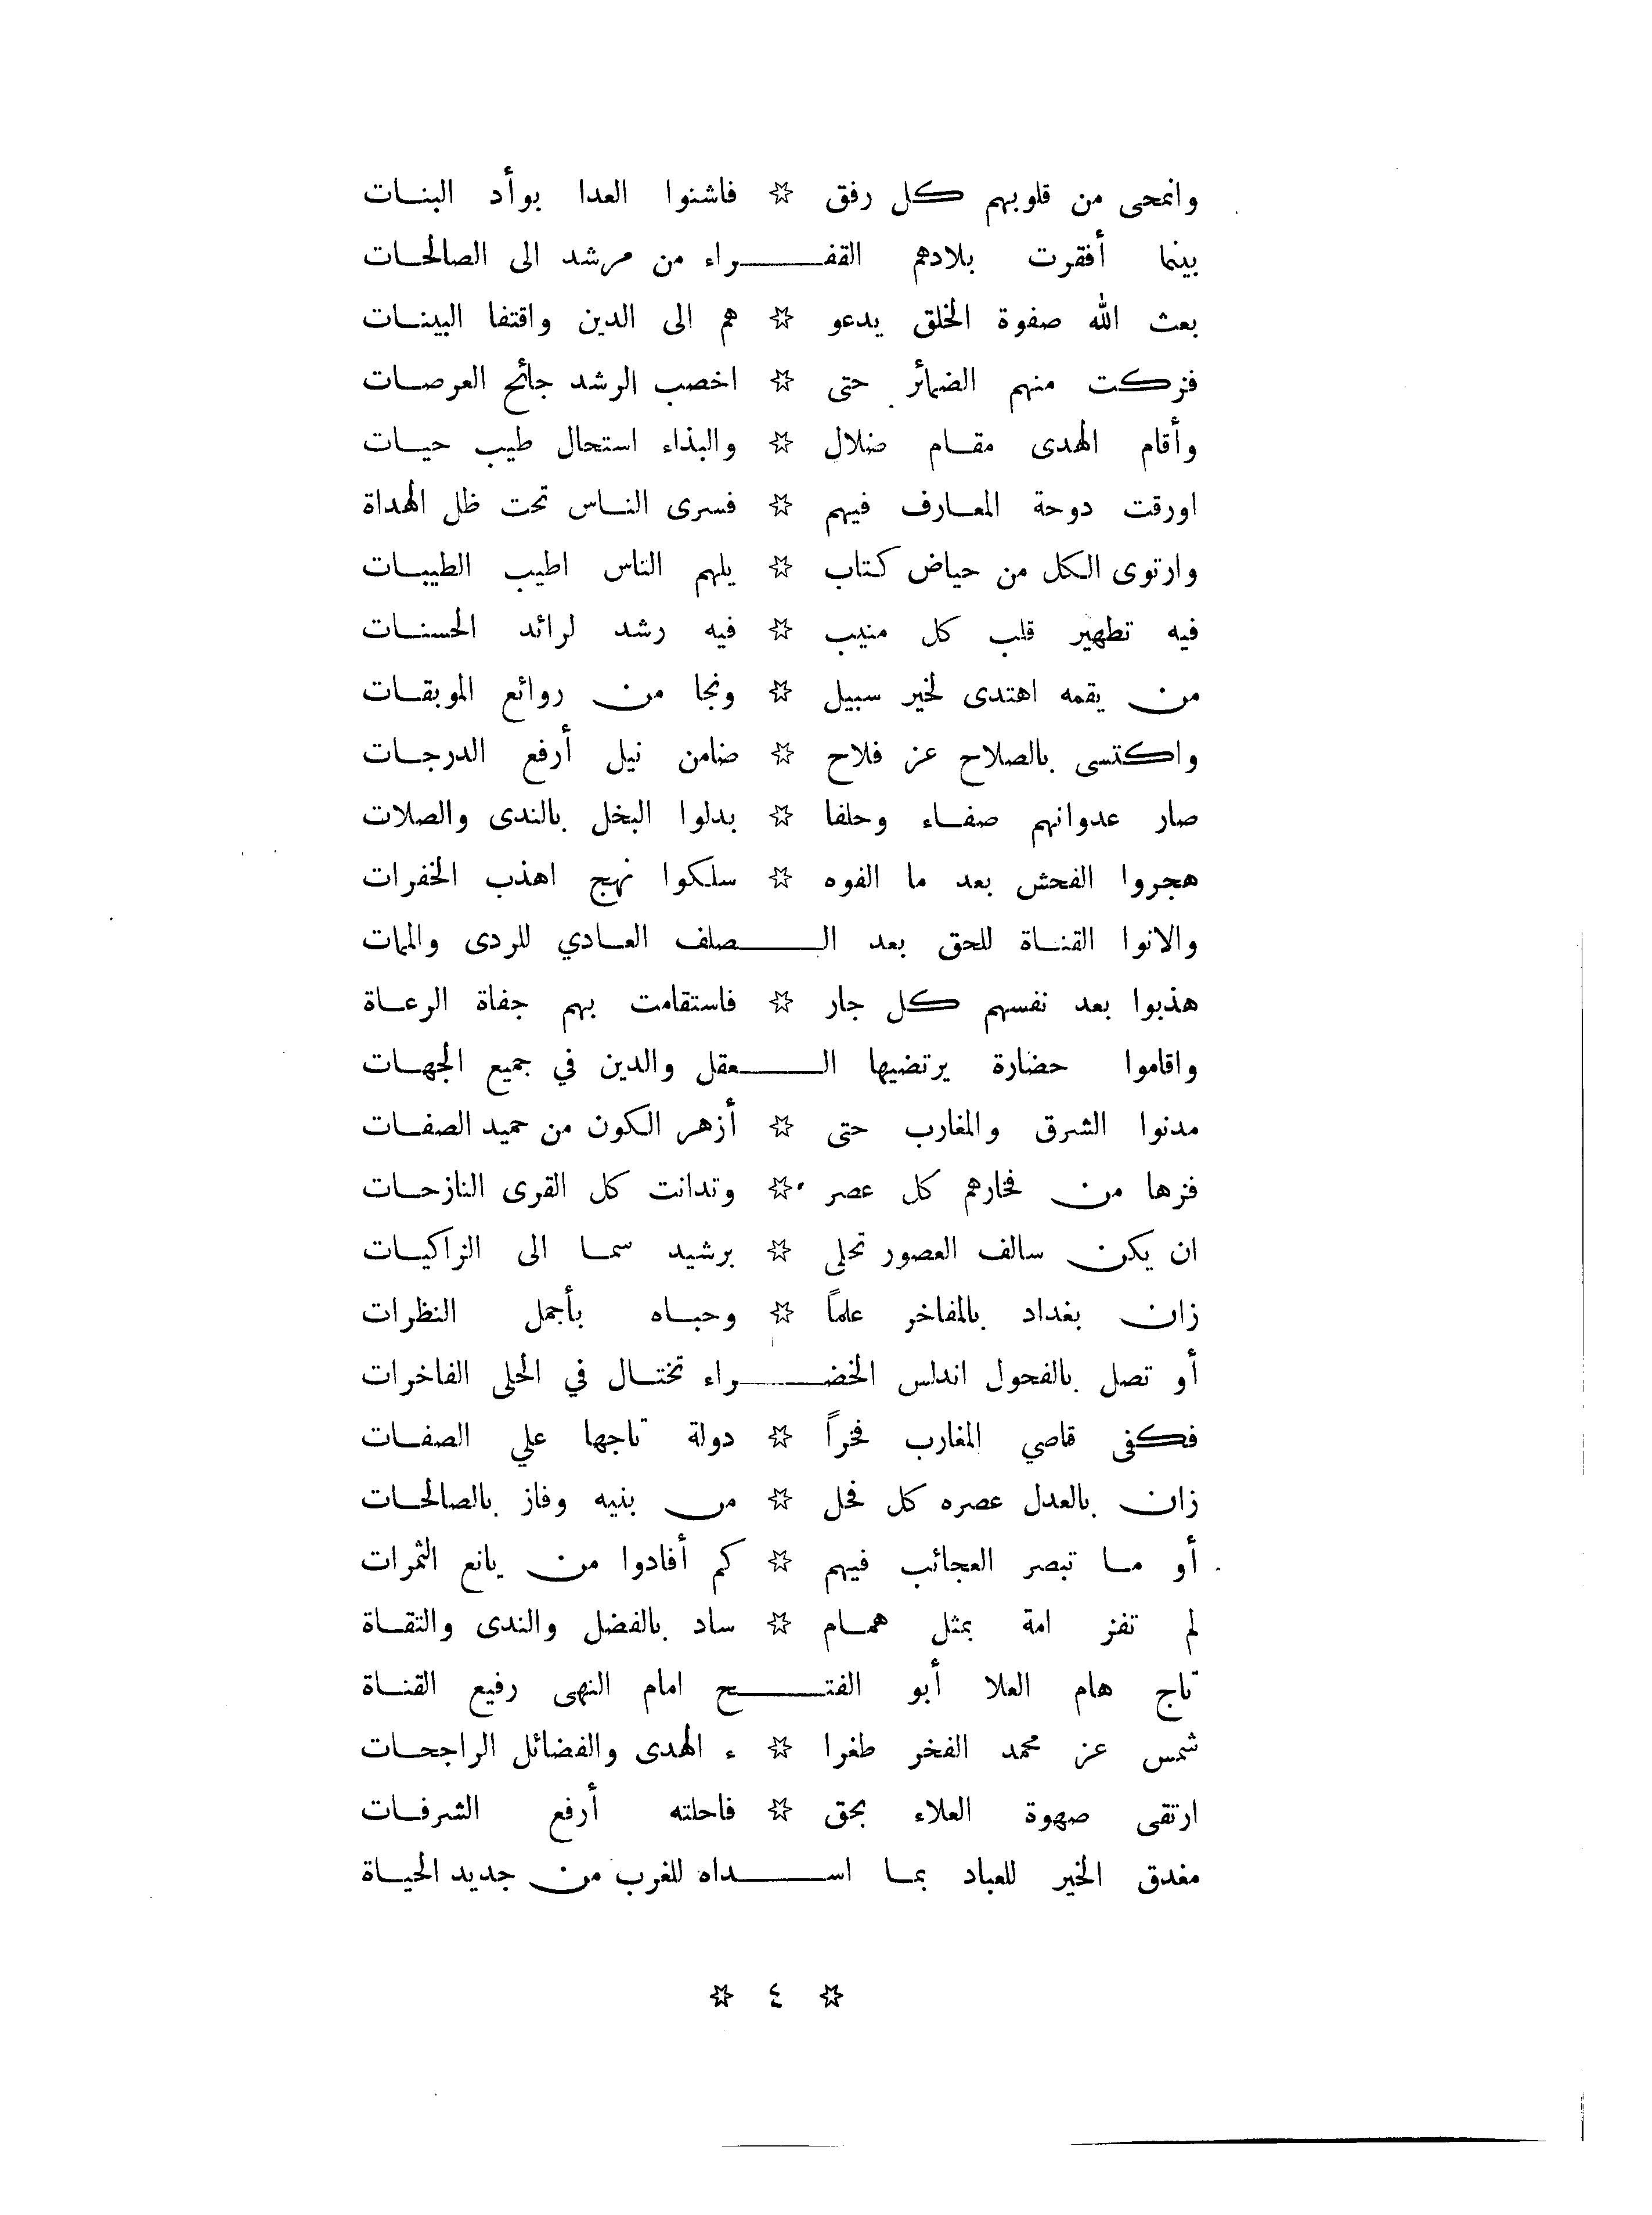 وانمحى من قلوبهم كل رفق ☆ فاشنوا العدا بوأد البنات
بينما أفقرت بلادهم القفـــراء من مرشد الى الصالحات
بعث الله صفوة الخلق يدعو ☆ هم الى الدين واقتفا البينات
فزكت منهم الضمائر حتى ☆ اخصب الرشد جائح العرصات
وأقام الهدى مقام ضلال ☆ والبذاء استحال طيب حيات
اورقت دوحة المعارف فيهم ☆ فسرى الناس تحت ظل الهداة
وارتوى الكل من حياض كتاب ☆ يلهم الناس اطيب الطيبات
فيه تطهير قلب كل منيب ☆ فيه رشد لرائد الحسنات
من يقمه اهتدى لخير سبيل ☆ ونجا من روائع الموبقات
واكتسى بالصلاح عز فلاح ☆ ضامن نيل أرفع الدرجات
صار عدوانهم صفاء وحلفا ☆ بدلوا البخل بالندى والصلات
هجروا الفحش بعد ما الفوه ☆ سلكوا نهج اهذب الخفرات
والانوا القناة للحق بعد الـــصلف العادي للردى والممات
هذبوا بعد نفسهم كل جار ☆ فاستقامت بهم جفاة الرعاة
واقاموا حضارة يرتضيها الـــعقل والدين في جميع الجهات
مدنوا الشرق والمغارب حتى ☆ أزهر الكون من حميد الصفات
فزها من فخارهم كل عصر ☆ وتدانت كل القرى النازحات
ان يكن سالف العصور تحلى ☆ برشيد سما الى الزاكيات
زان بغداد بالمفاخر علماً ☆ وحباه بأجمل النظرات
أو تصل بالفحول اندلس الخضـــراء تختال في الحلى الفاخرات
فكفى قاصي المغارب فخراً ☆ دولة تاجها علي الصفات
زان بالعدل عصره كل فحل ☆ من بنيه وفاز بالصالحات
أو ما تبصر العجائب فيهم ☆ كم أفادوا من يانع الثمرات
لم تفز امة بمثل همام ☆ ساد بالفضل والندى والتقاة
تاج هام العلا أبو الفتـــح امام النهى رفيع القناة
شمس عز محمد الفخر طغرا ☆ ء الهدى والفضائل الراجحات
ارتقى صهوة العلاء بحق ☆ فاحلته أرفع الشرفات
مغدق الخير للعباد بما اســـداه للغرب من جديد الحياة
☆ ٤ ☆